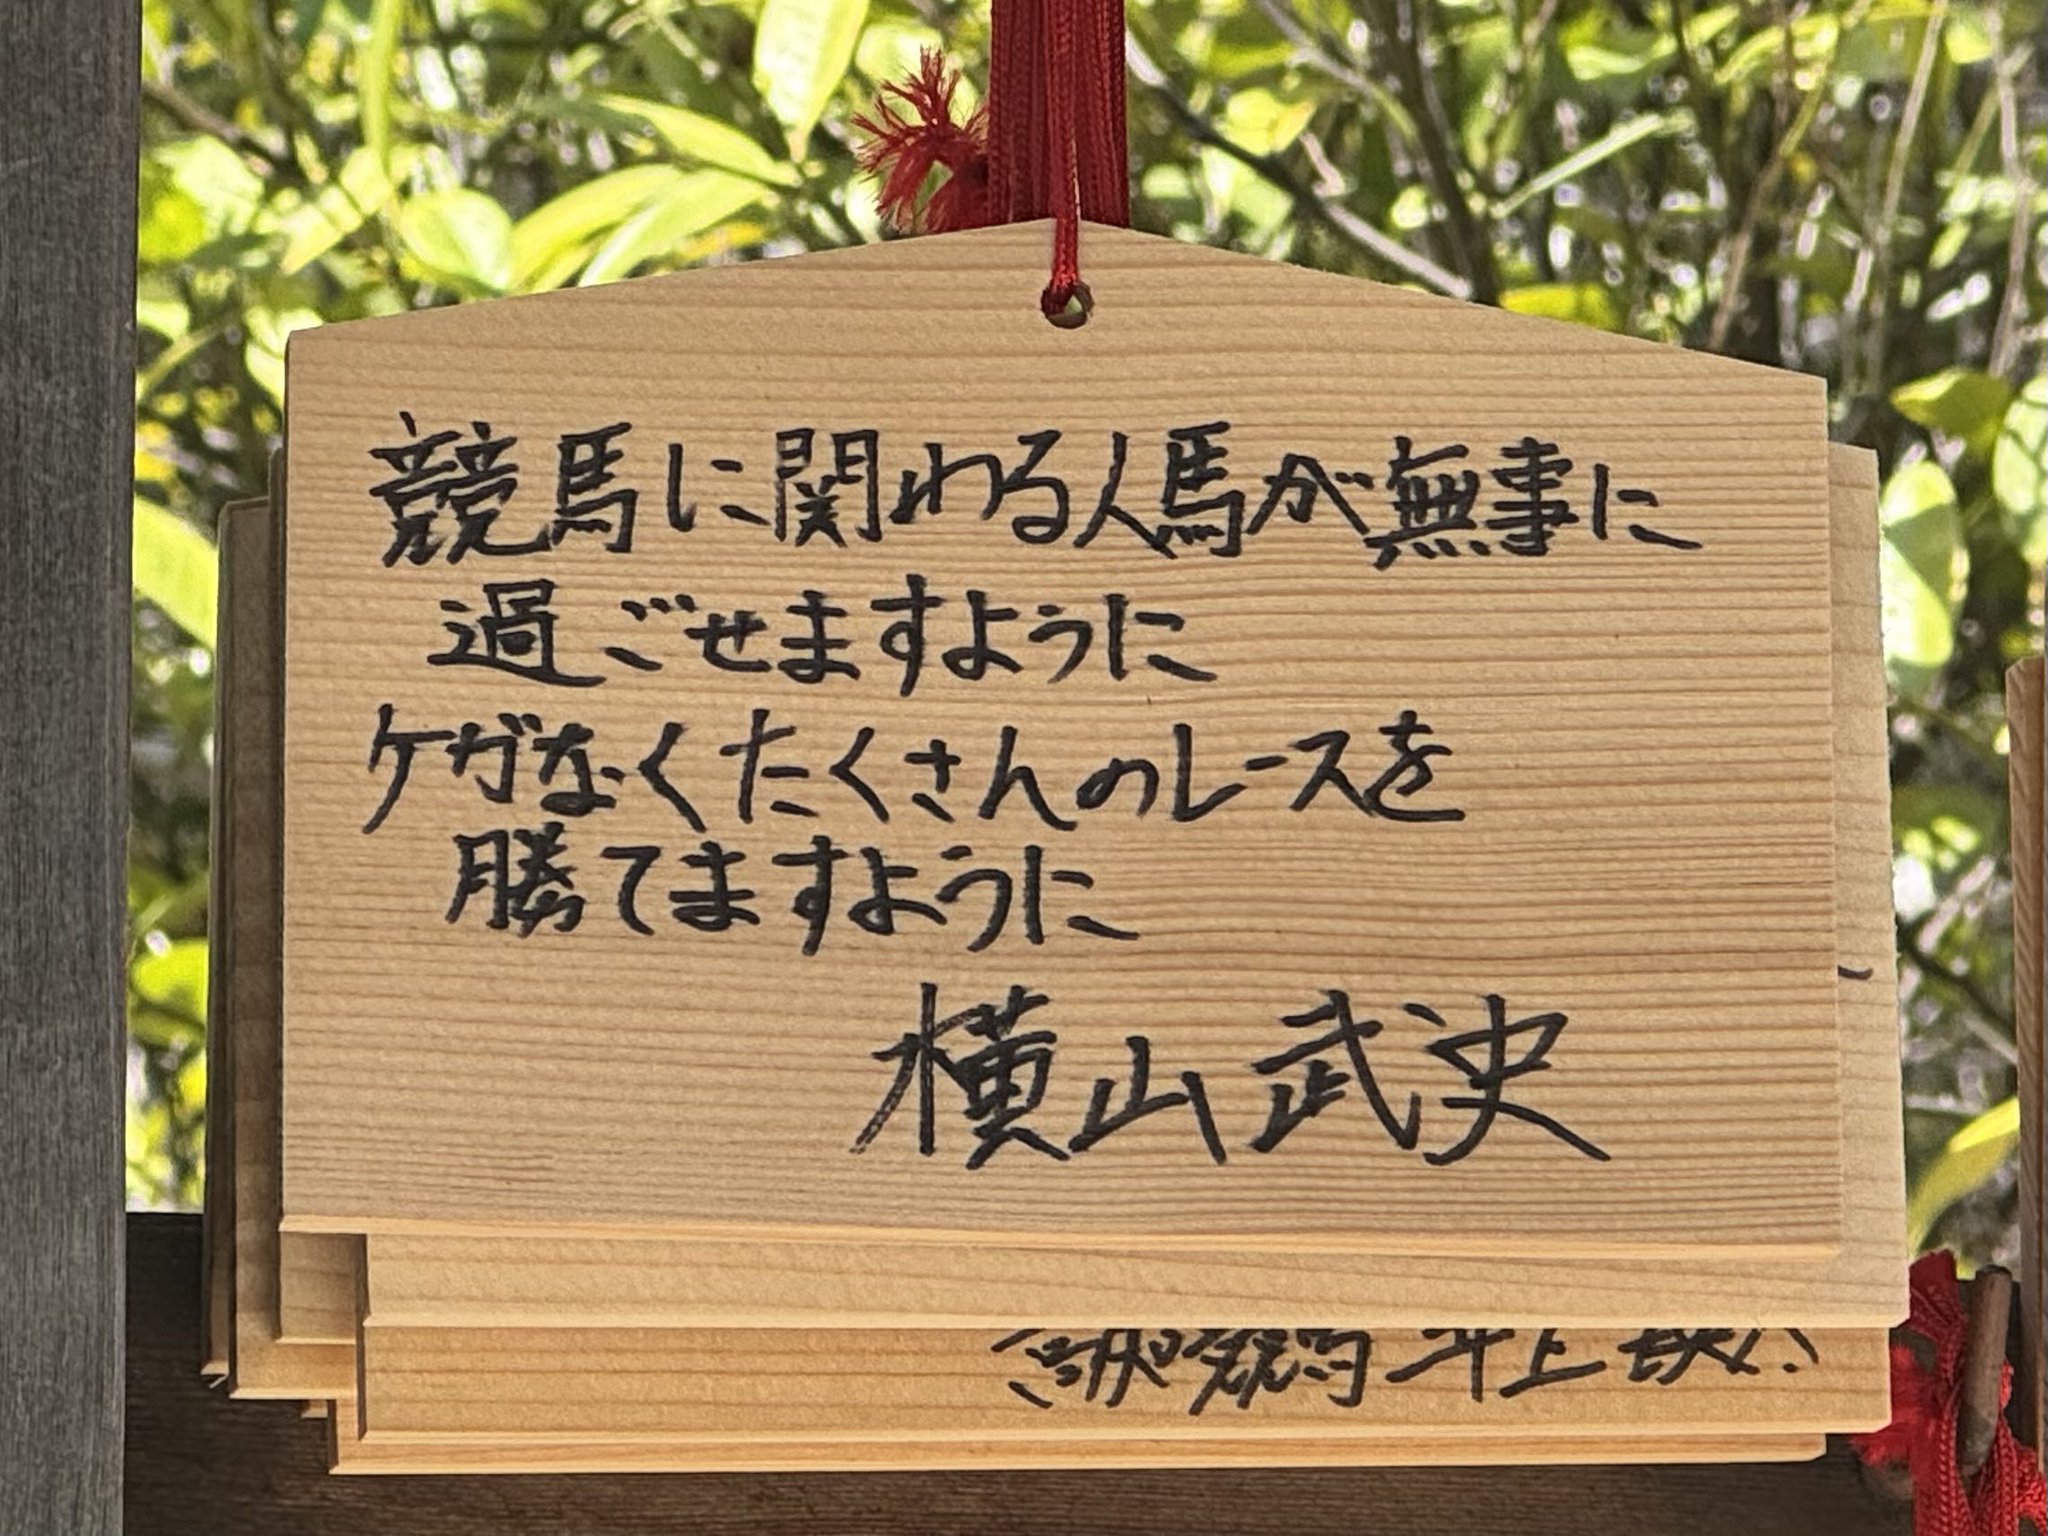 競馬に関わる人馬が無事に
過ごせますように
ケガなくたくさんのレースを
勝てますように
横山武史
井上